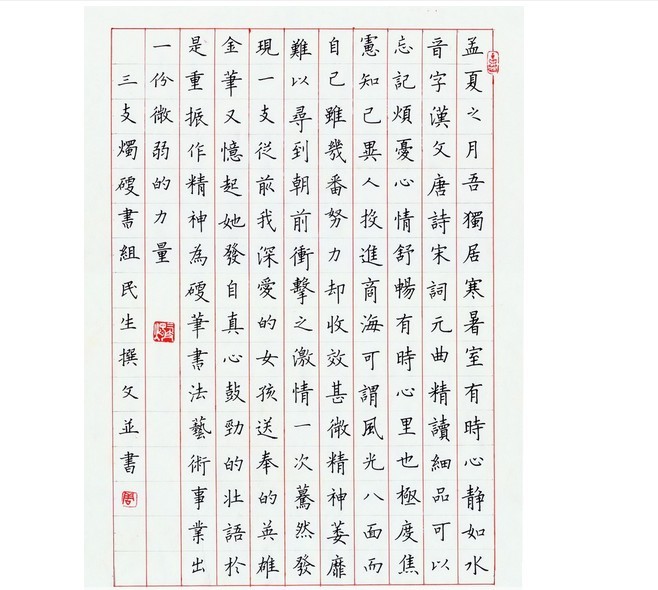 孟夏之月吾獨居寒暑室有時心静如水
音字漢文唐詩宋詞元曲精讀細品可以
忘記煩憂心情舒暢有時心里也極度焦
憲知己異人投進商海可謂風光八面而
自己雖幾番努力却收效甚微精神萎靡
難以尋到朝前衝擊之激情一次驀然發
現一支從前我深愛的女孩送奉的英雄
金筆又憶起她發自真心鼓勁的壮語於
是重振作精神為硬筆書法藝術事業出
一份微弱的力量
三支燭硬書組民生撰文並書